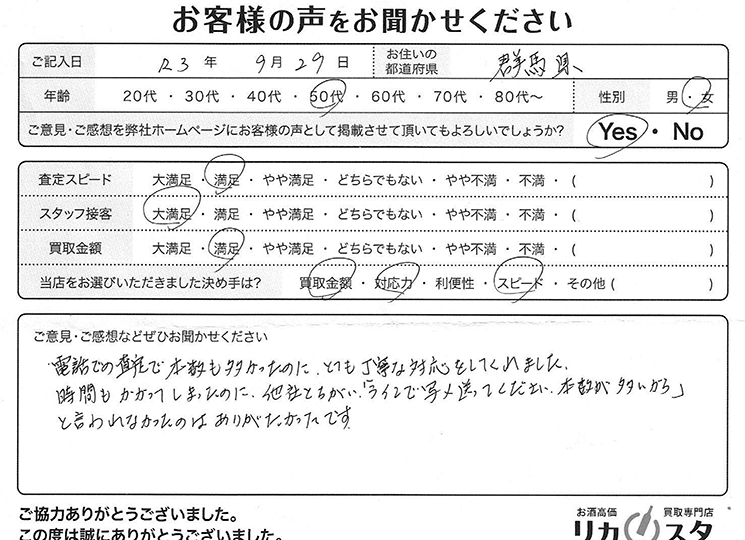 お客様の声をお聞かせください
ご記入日 R3 年 9 月 29 日 お住いの都道府県 群馬県
年齢 20代 ・ 30代 ・ 40代 ・ 50代 ・ 60代 ・ 70代 ・ 80代～ 性別 男 ・ 女
ご意見・ご感想を弊社ホームページにお客様の声として掲載させて頂いてもよろしいでしょうか? Yes ・ No
査定スピード 大満足 ・ 満足 ・ やや満足 ・ どちらでもない ・ やや不満 ・ 不満 ・ ( )
スタッフ接客 大満足 ・ 満足 ・ やや満足 ・ どちらでもない ・ やや不満 ・ 不満 ・ ( )
買取金額 大満足 ・ 満足 ・ やや満足 ・ どちらでもない ・ やや不満 ・ 不満 ・ ( )
当店をお選びいただきました決め手は? 買取金額 ・ 対応力 ・ 利便性 ・ スピード ・ その他 ( )
ご意見・ご感想などぜひお聞かせください
電話での査定で本数も多かったのに、とても丁寧な対応をしてくれました。
時間もかかってしまったのに、他社とちがい、「ラインで写メ送ってください、本数が多いから」
と言われなかったのはありがたかったです
ご協力ありがとうございました。
この度は誠にありがとうございました。
お酒高価 買取専門店
リカスタ